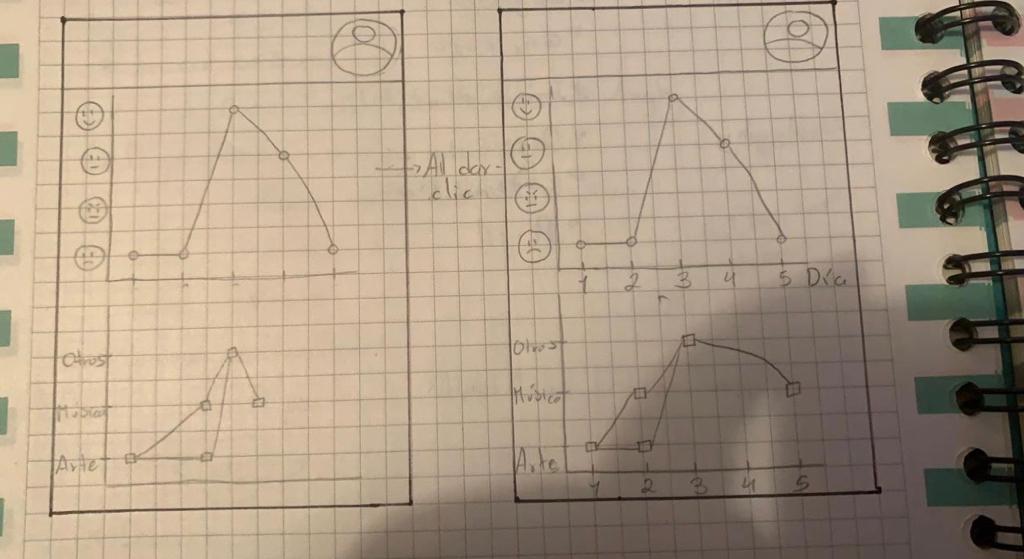 Otros
Música
Arte
Al dar
clic
1 2 3 4 5 Día
Otros
Música
Arte
1 2 3 4 5